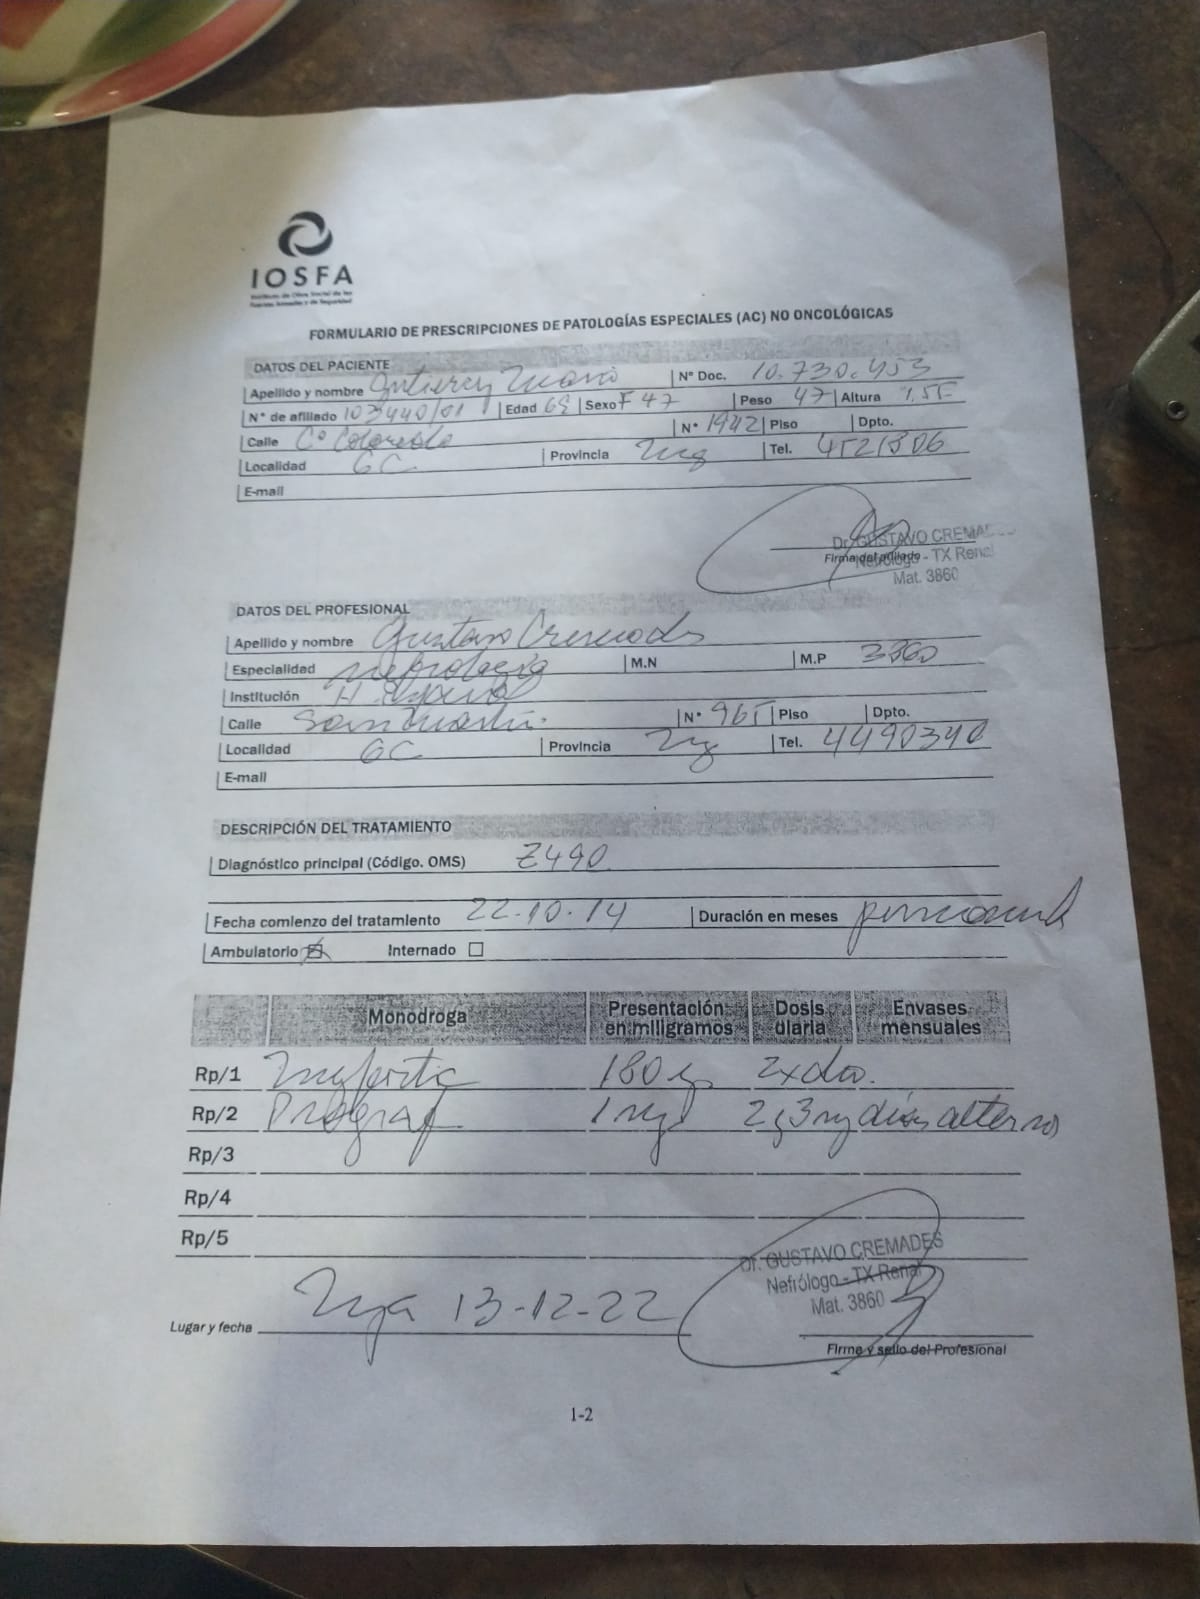 IOSFA
Instituto de Obra Social de las
Fuerzas Armadas y de Seguridad
FORMULARIO DE PRESCRIPCIONES DE PATOLOGÍAS ESPECIALES (AC) NO ONCOLÓGICAS
DATOS DEL PACIENTE
Apellido y nombre Gutierrez Nº Doc. 10.730.453
Nº de afiliado 103440/01 Edad Sexo F 47 Peso 47 Altura 1,55
Calle Cº Colorado Nº 1942 Piso Dpto.
Localidad GC Provincia Mza Tel. 4521806
E-mail
Dr. GUSTAVO CREMADES
Firma del afiliado
Nefrólogo - TX Renal
Mat. 3860
DATOS DEL PROFESIONAL
Apellido y nombre Gustavo Cremades
Especialidad nefrología M.N M.P 3860
Institución H.
Calle San Martín Nº 965 Piso Dpto.
Localidad GC Provincia Mza Tel. 4490340
E-mail
DESCRIPCIÓN DEL TRATAMIENTO
Diagnóstico principal (Código. OMS) Z490
Fecha comienzo del tratamiento 22-10-14 Duración en meses
Ambulatorio Internado
Monodroga Presentación en miligramos Dosis diaria Envases mensuales
Rp/1 Myfortic 180 2x día.
Rp/2 Prograf 1 mg 2 y 3 mg días alternos
Rp/3
Rp/4
Rp/5
Dr. GUSTAVO CREMADES
Nefrólogo - TX Renal
Mat. 3860
Lugar y fecha Mza 13-12-22
Firma y sello del Profesional
1-2